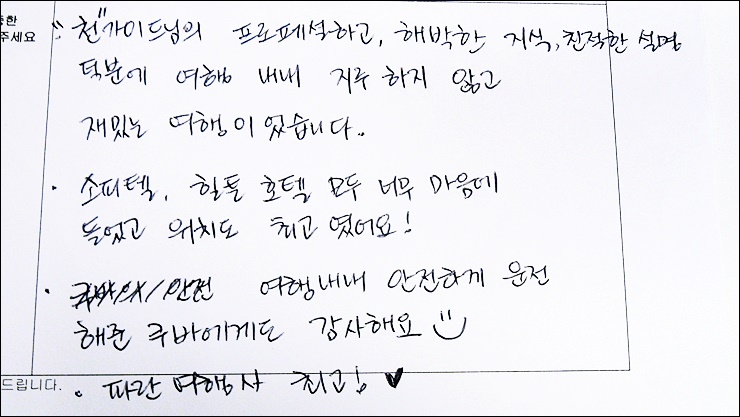 한
주세요
"천"가이드님의 프로페셔하고, 해박한 지식, 친적한 설명
덕분에 여행 내내 지루 하지 않고
재밌는 여행이 었습니다..
· 소피텔, 힐튼 호텔 모두 너무 마음에
들었고 위치도 최고 였어요!
· 안전 여행내내 안전하게 운전
해준 쿠바에게도 감사해요
드립니다. · 파란 여행사 최고! ♥